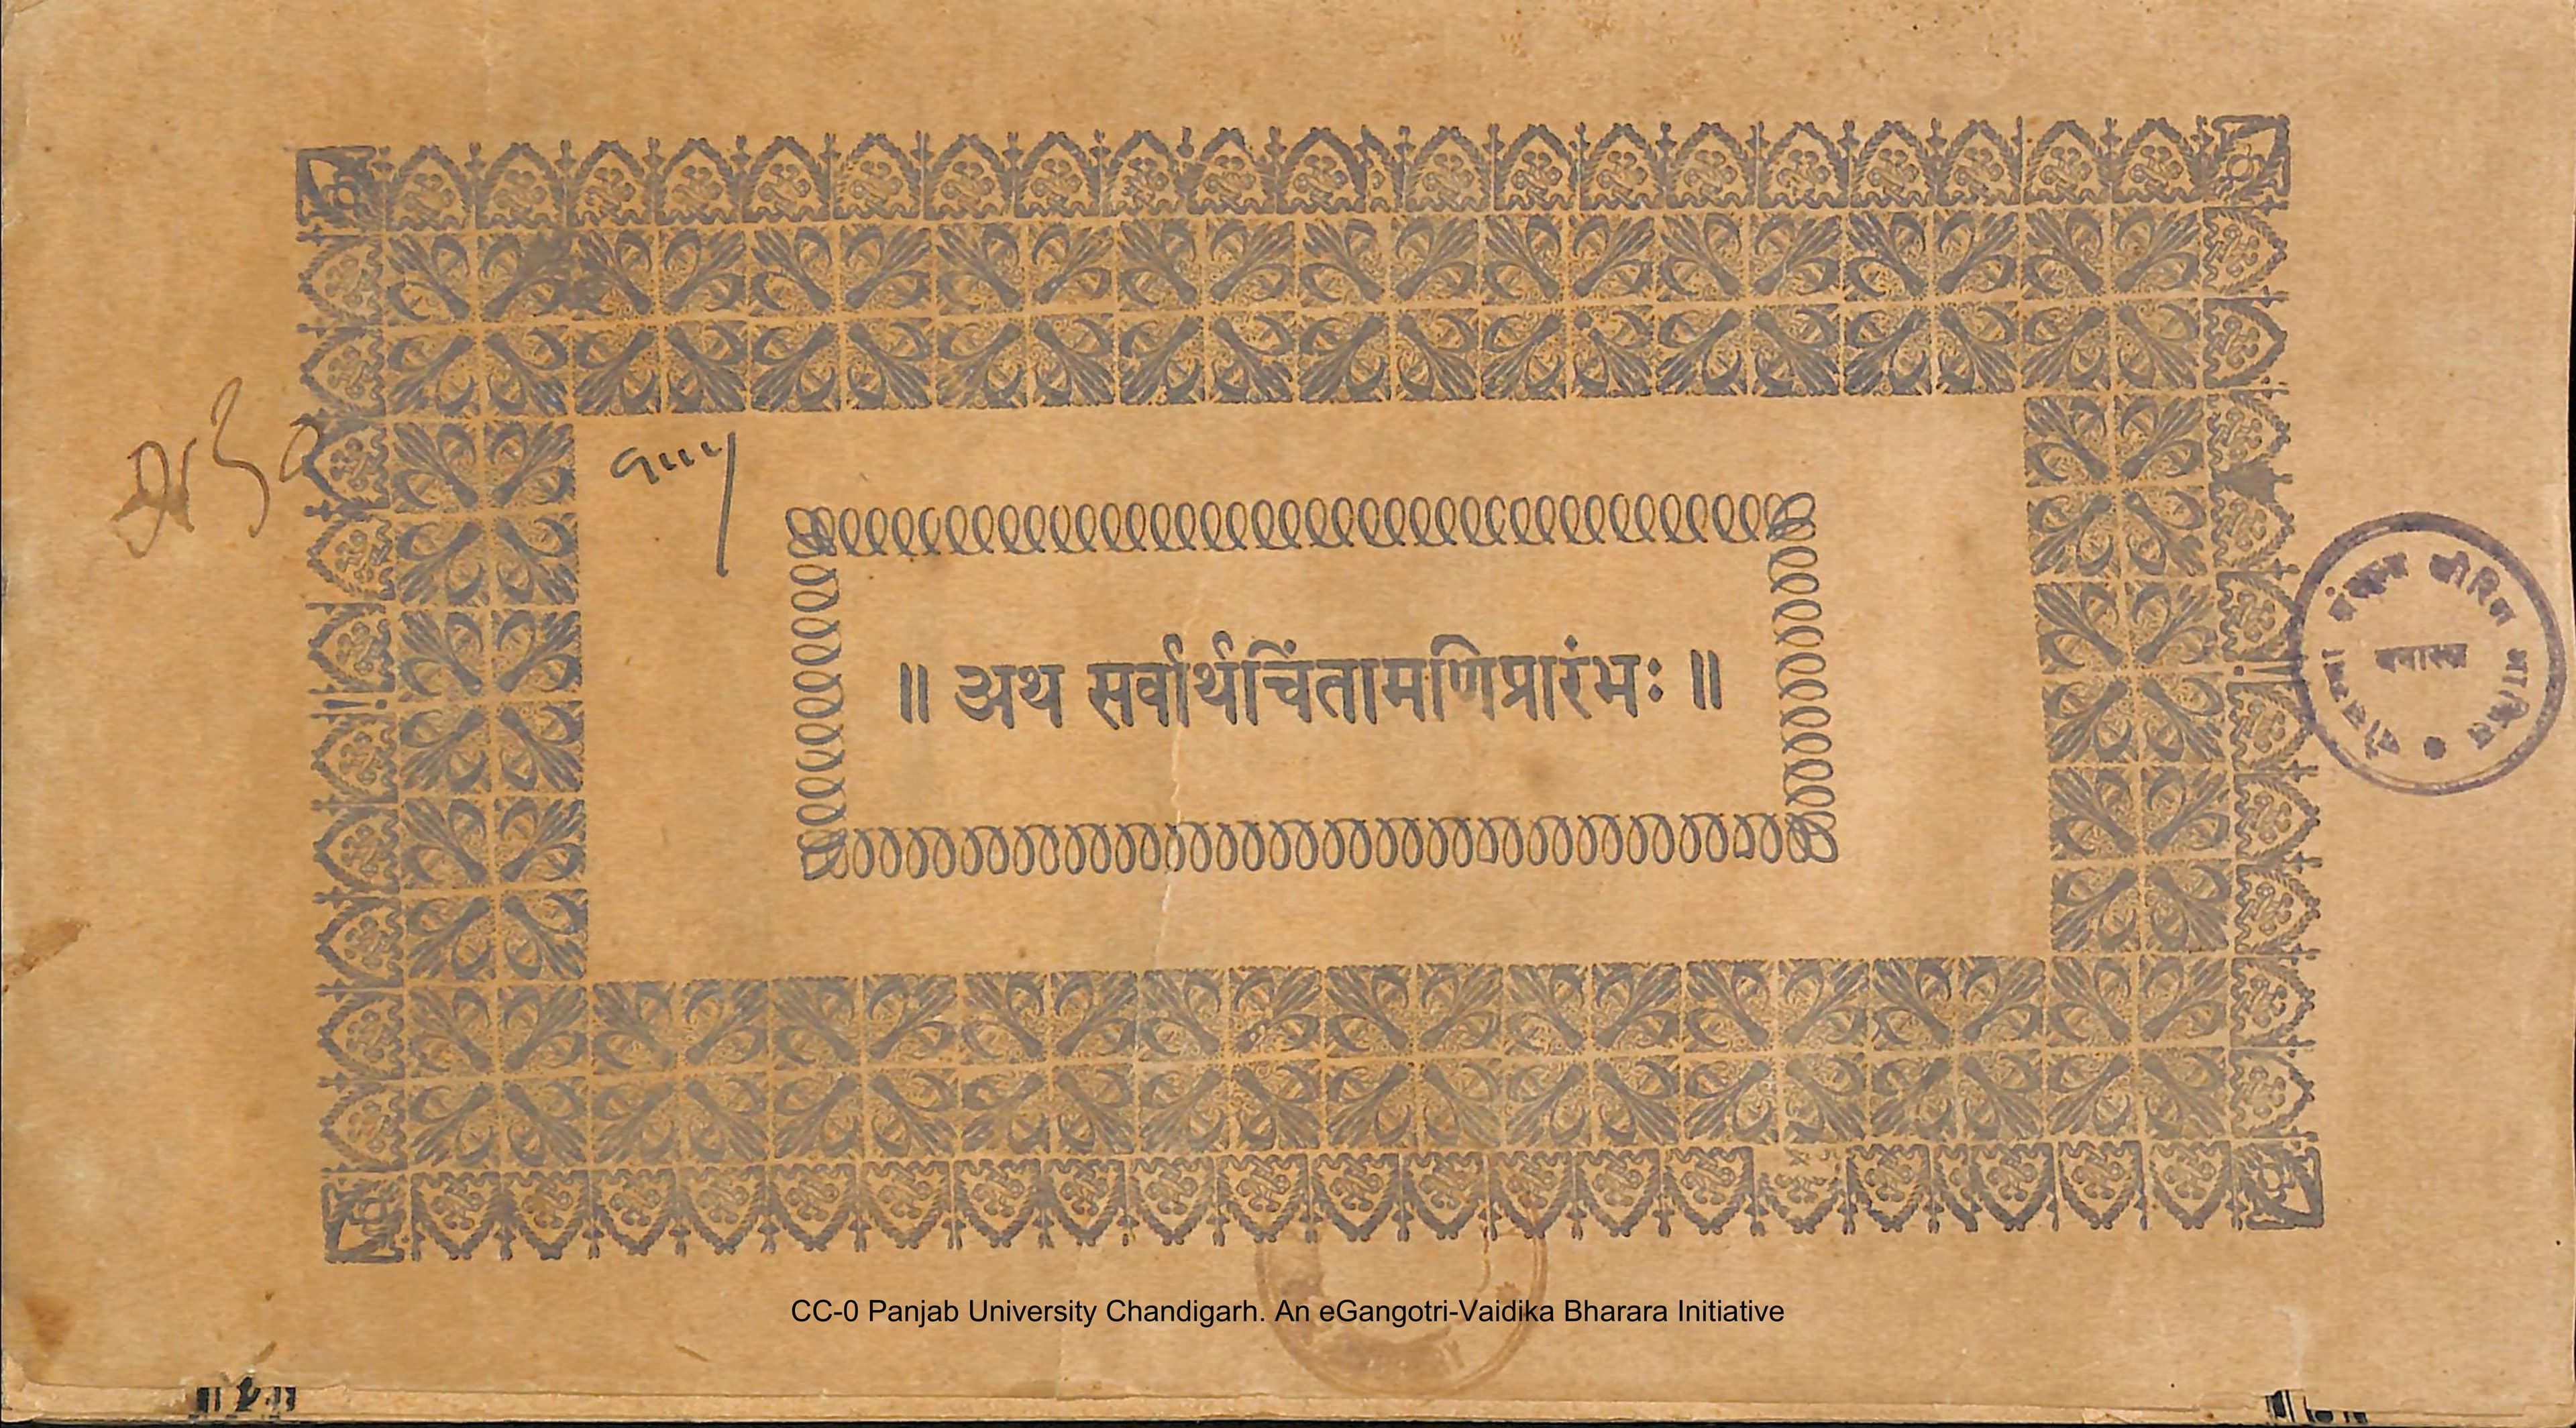 ॥ अथ सर्वार्थचिंतामणिप्रारंभः ॥
बनारस
CC-0 Panjab University Chandigarh. An eGangotri-Vaidika Bharara Initiative